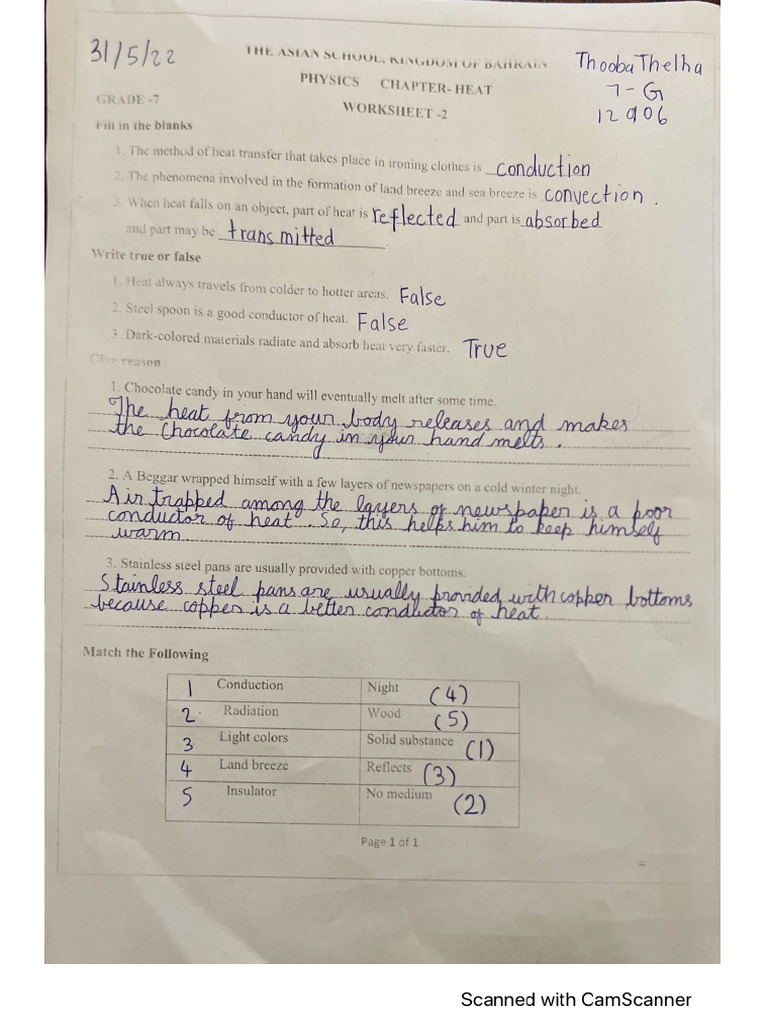 31/5/22
THE ASIAN SCHOOL, KINGDOM OF BAHRAIN
Thooba Thelha
PHYSICS CHAPTER- HEAT
7-G
GRADE -7
WORKSHEET -2
12906
Fill in the blanks
1. The method of heat transfer that takes place in ironing clothes is conduction
2. The phenomena involved in the formation of land breeze and sea breeze is convection.
3. When heat falls on an object, part of heat is reflected and part is absorbed
and part may be transmitted.
Write true or false
1. Heat always travels from colder to hotter areas. False
2. Steel spoon is a good conductor of heat. False
3. Dark-colored materials radiate and absorb heat very faster. True
Give reason
1. Chocolate candy in your hand will eventually melt after some time.
The heat from your body releases and makes
the Chocolate candy in your hand melts.
2. A Beggar wrapped himself with a few layers of newspapers on a cold winter night.
Air trapped among the layers of newspaper is a poor
conductor of heat. So, this helps him to keep himself
warm
3. Stainless steel pans are usually provided with copper bottoms.
Stainless steel pans are usually provided with copper bottoms
because copper is a better conductor of heat.
Match the Following
1 Conduction Night (4)
2. Radiation Wood (5)
3 Light colors Solid substance (1)
4 Land breeze Reflects (3)
5 Insulator No medium (2)
Page 1 of 1
Scanned with CamScanner